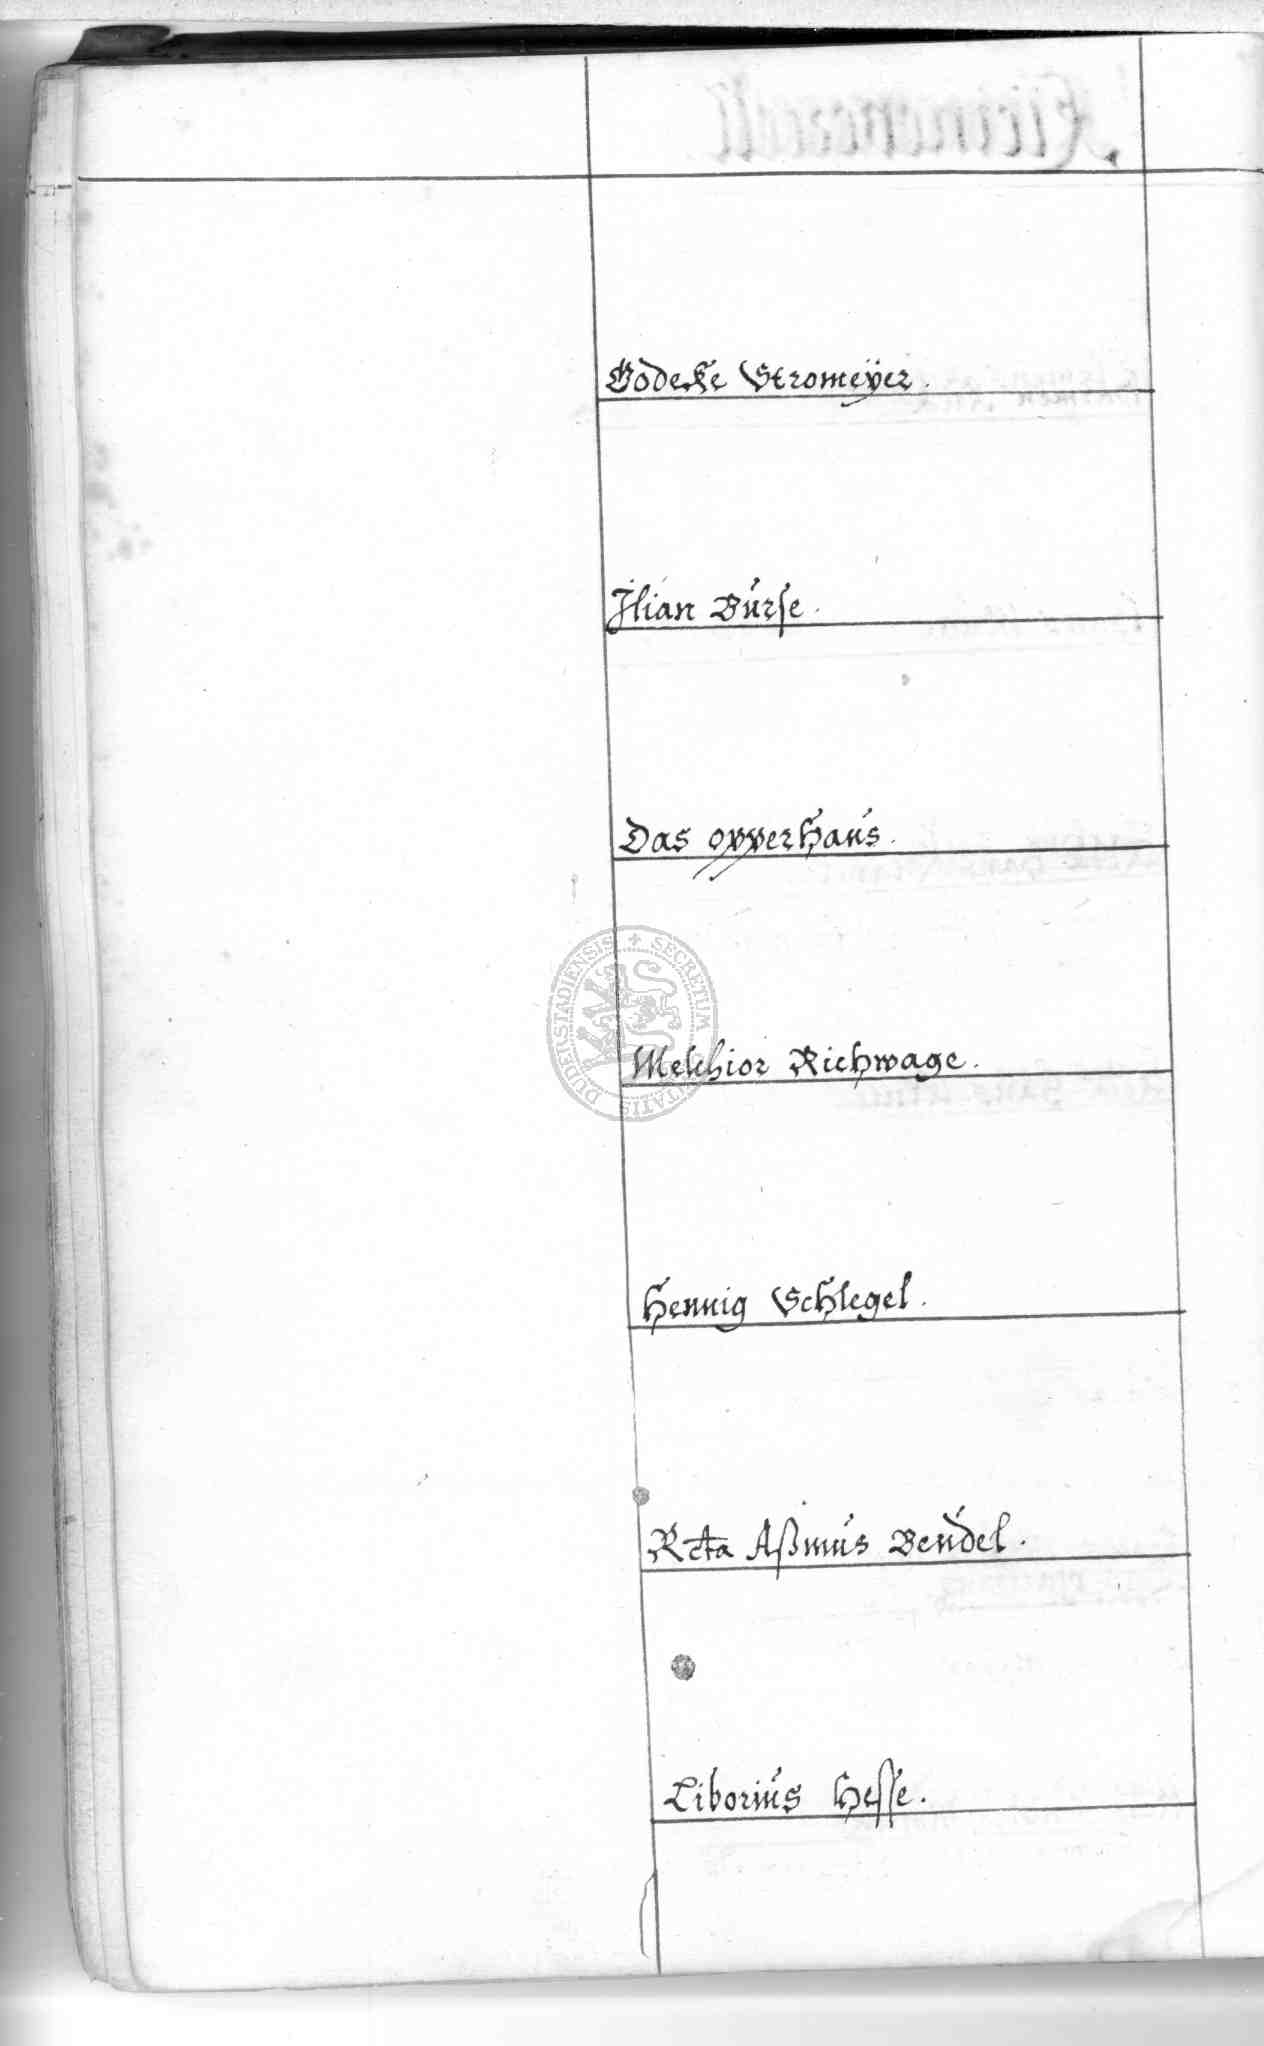 Godeke Stromeÿer.
Ilian Burse.
Das opperhaus.
SECRETUM
DUDERSTADIENSIS
Melchior Richwage.
Hennig Schlegel.
Rcta Aßmus Bendel.
Liborius Hesse.